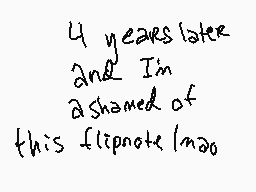 4 years later
and I'm
ashamed of
this flipnote lmao